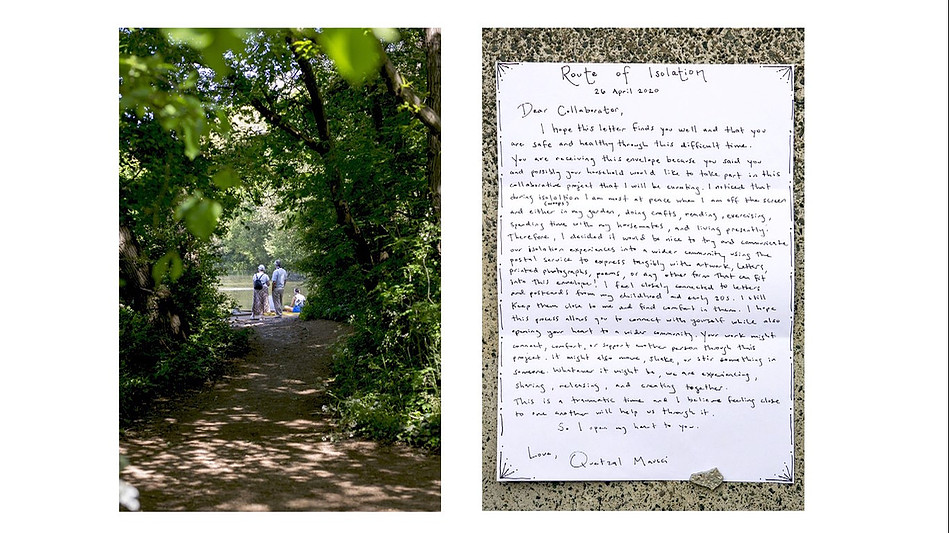 Route of Isolation
26 April 2020
Dear Collaborator,
I hope this letter finds you well and that you
are safe and healthy through this difficult time.
You are receiving this envelope because you said you
and possibly your household would like to take part in this
collaborative project that I will be curating. I noticed that
during isolation I am most at peace when I am off the screen
(woops)
and either in my garden, doing crafts, reading, exercising,
spending time with my housemates, and living presently.
Therefore, I decided it would be nice to try and communicate
our isolation experiences into a wider community using the
postal service to express tangibly with artwork, letters,
printed photographs, poems, or any other form that can fit
into this envelope! I feel closely connected to letters
and postcards from my childhood and early 20s. I still
keep them close to me and find comfort in them. I hope
this process allows you to connect with yourself while also
opening your heart to a wider community. Your work might
connect, comfort, or support another person through this
project. It might also move, shake, or stir something in
someone. Whatever it might be, we are experiencing,
sharing, releasing, and creating together.
This is a traumatic time and I believe feeling close
to one another will help us through it.
So I open my heart to you.
Love,
Quetzal Maucci